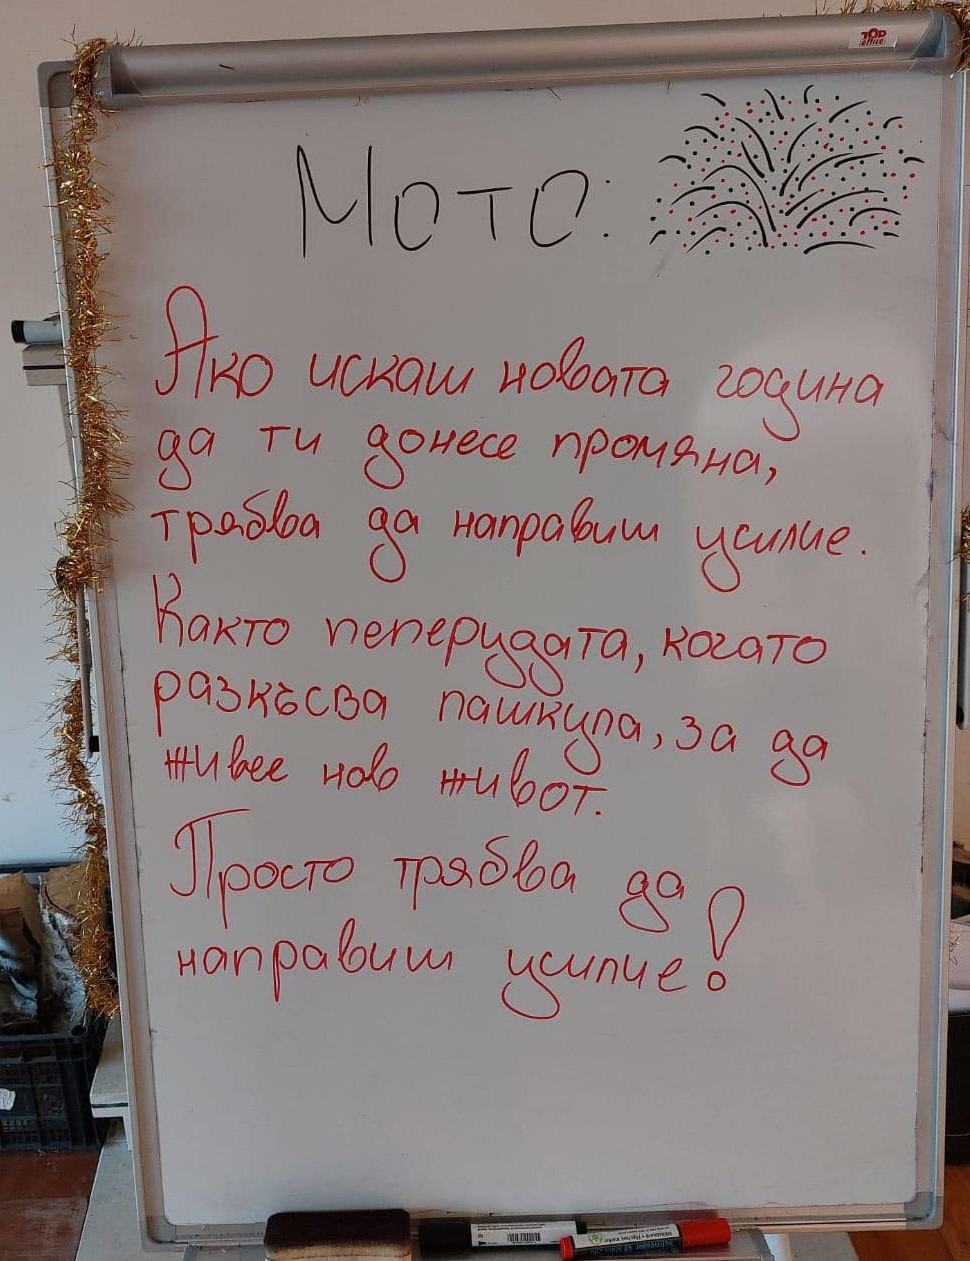 TOP office
Мото:
Ако искаш новата година
да ти донесе промяна,
трябва да направиш усилие.
Както пеперудата, когато
разкъсва пашкула, за да
живее нов живот.
Просто трябва да
направиш усилие!
Schneider